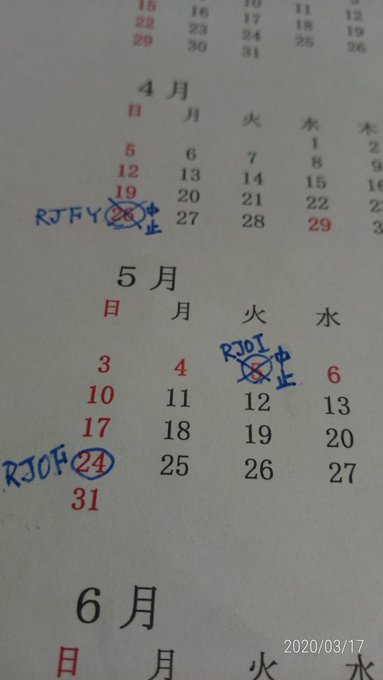 15 16 17 11 12
22 23 24 18 19
29 30 31 25 26
4月
日 月 火 水 木
1 2
5 6 7 8 9
12 13 14 15 16
RJFY 19 20 21 22
26 中止 27 28 29
5月
日 月 火 水
RJOI
3 4 5 中止 6
10 11 12 13
17 18 19 20
RJOF 24 25 26 27
31
6月
日 月 火 水
2020/03/17